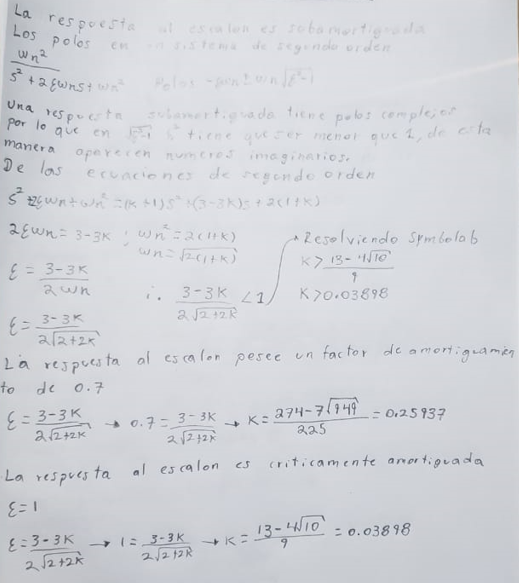 La respuesta al escalon es subamortiguada
Los polos en un sistema de segundo orden
wn²
s² + 2ξwns + wn² Polos -ξwn ± wn√(ξ²-1)
Una respuesta subamortiguada tiene polos complejos
por lo que en √(ξ²-1) ξ² tiene que ser menor que 1, de esta
manera aparecen numeros imaginarios.
De las ecuaciones de segundo orden
s² + 2ξwn + wn² = (k+1)s² + (3-3k)s + 2(1+k)
2ξwn = 3-3k ; wn² = 2(1+k)
wn = √(2(1+k))
ξ = (3-3k)/(2wn)
∴ (3-3k)/(2√(2+2k)) < 1
Resolviendo Symbolab
k > (13-4√10)/9
k > 0.03898
ξ = (3-3k)/(2√(2+2k))
La respuesta al escalon posee un factor de amortiguamien
to de 0.7
ξ = (3-3k)/(2√(2+2k)) → 0.7 = (3-3k)/(2√(2+2k)) → k = (274-7√949)/225 = 0.25937
La respuesta al escalon es criticamente amortiguada
ξ = 1
ξ = (3-3k)/(2√(2+2k)) → 1 = (3-3k)/(2√(2+2k)) → k = (13-4√10)/9 = 0.03898